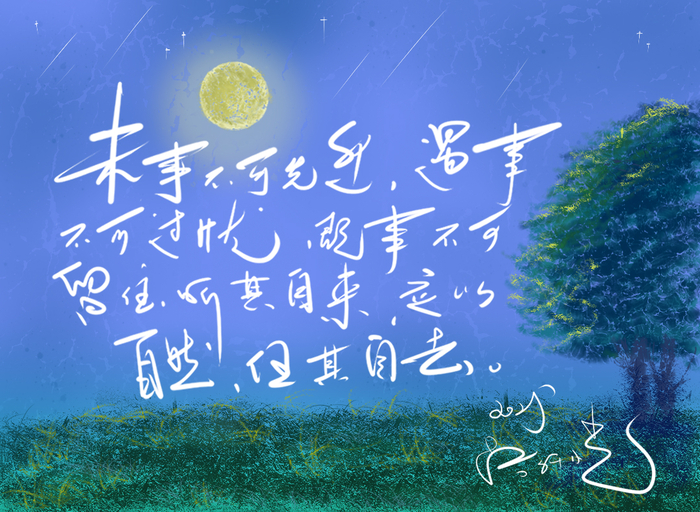 未事不可先迎，遇事
不可过忧，既事不可
留住，听其自来，应以
自然，任其自去。